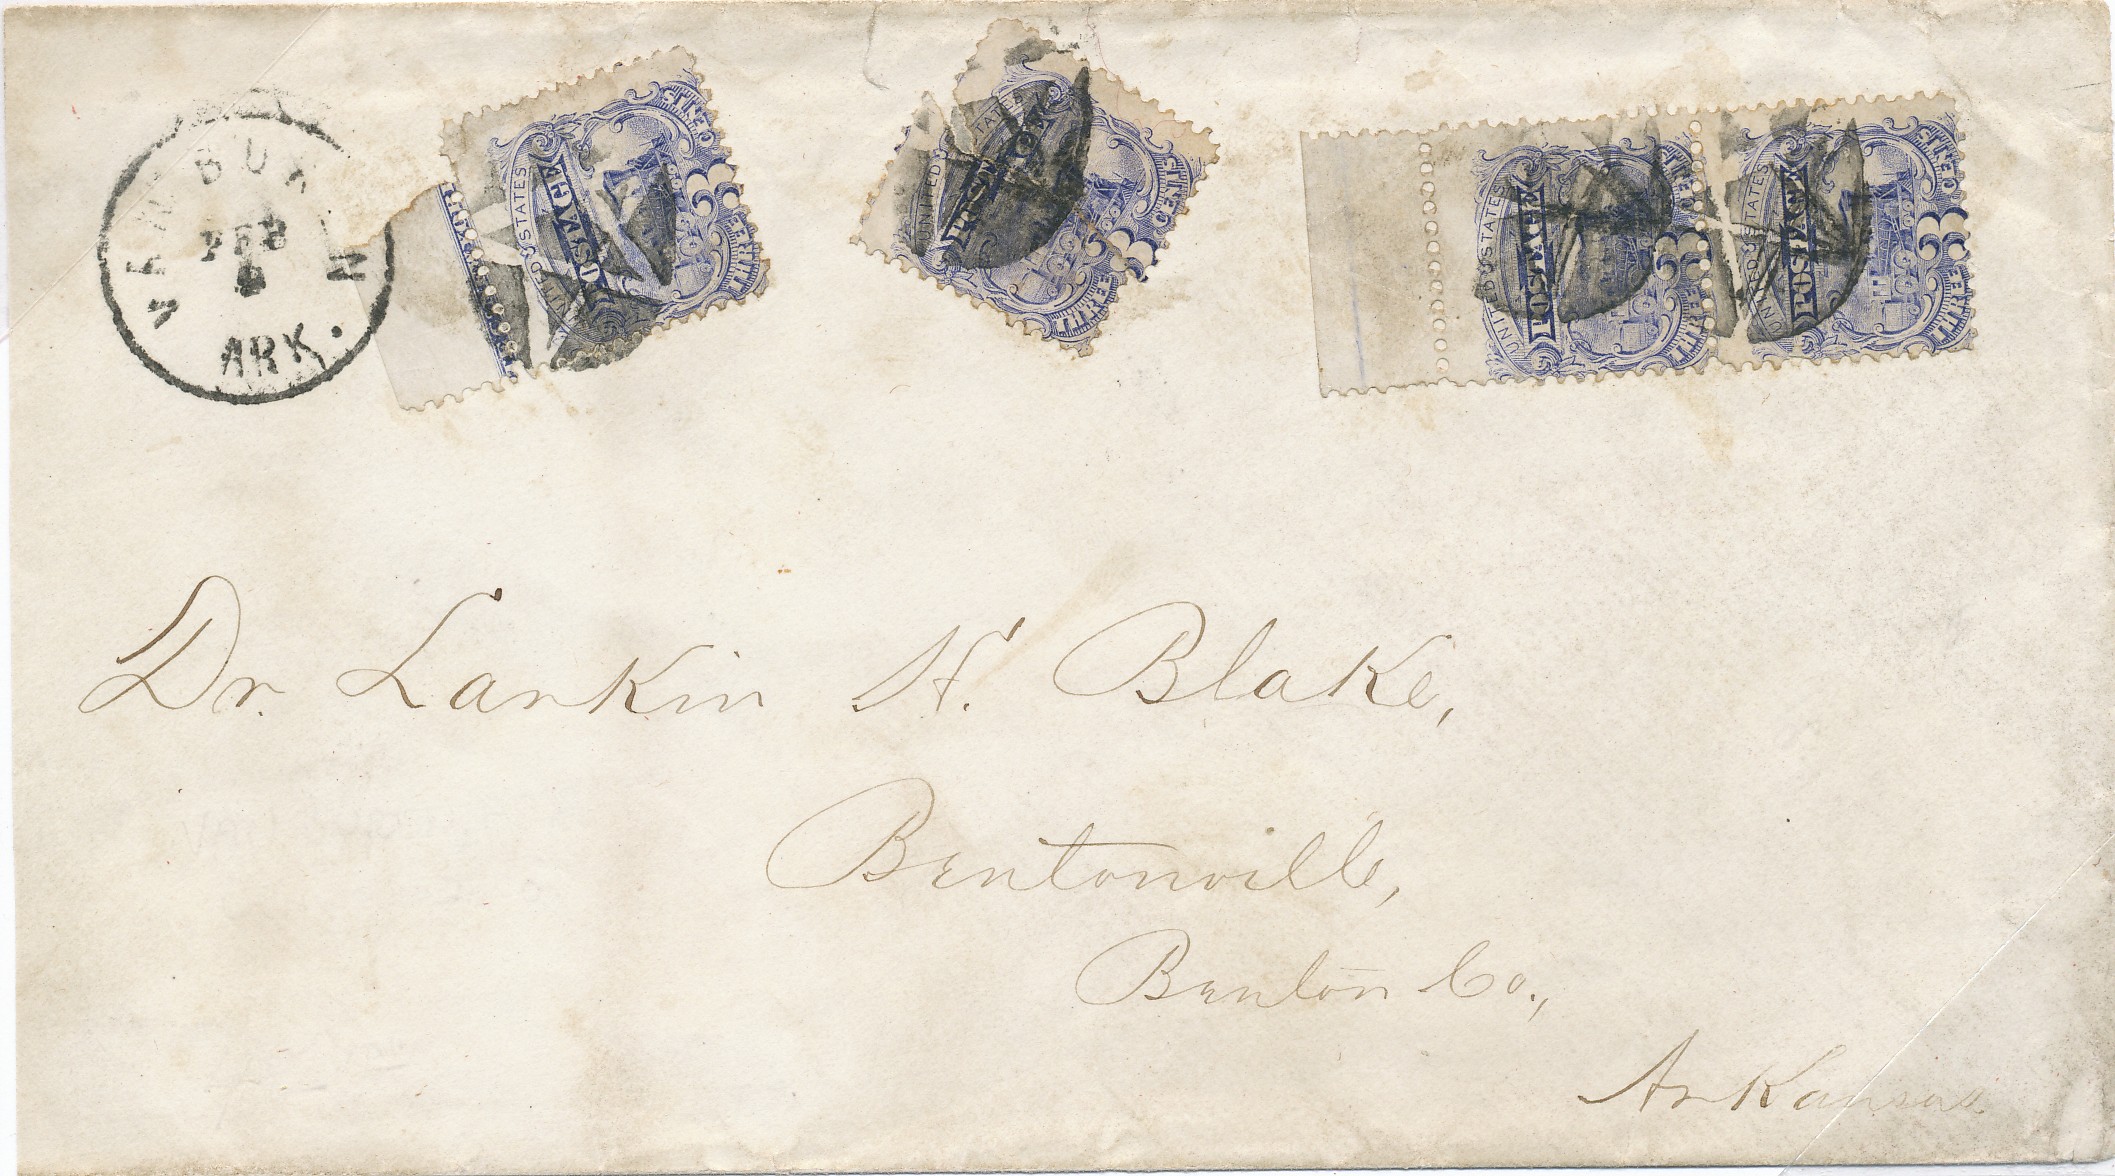 VAN BUREN
FEB
ARK.
UNITED STATES
POSTAGE
3
THREE CENTS
UNITED STATES
POSTAGE
3
THREE CENTS
UNITED STATES
POSTAGE
3
THREE CENTS
UNITED STATES
POSTAGE
3
THREE CENTS
Dr. Larkin H. Blake,
Bentonville,
Benton Co.,
Arkansas